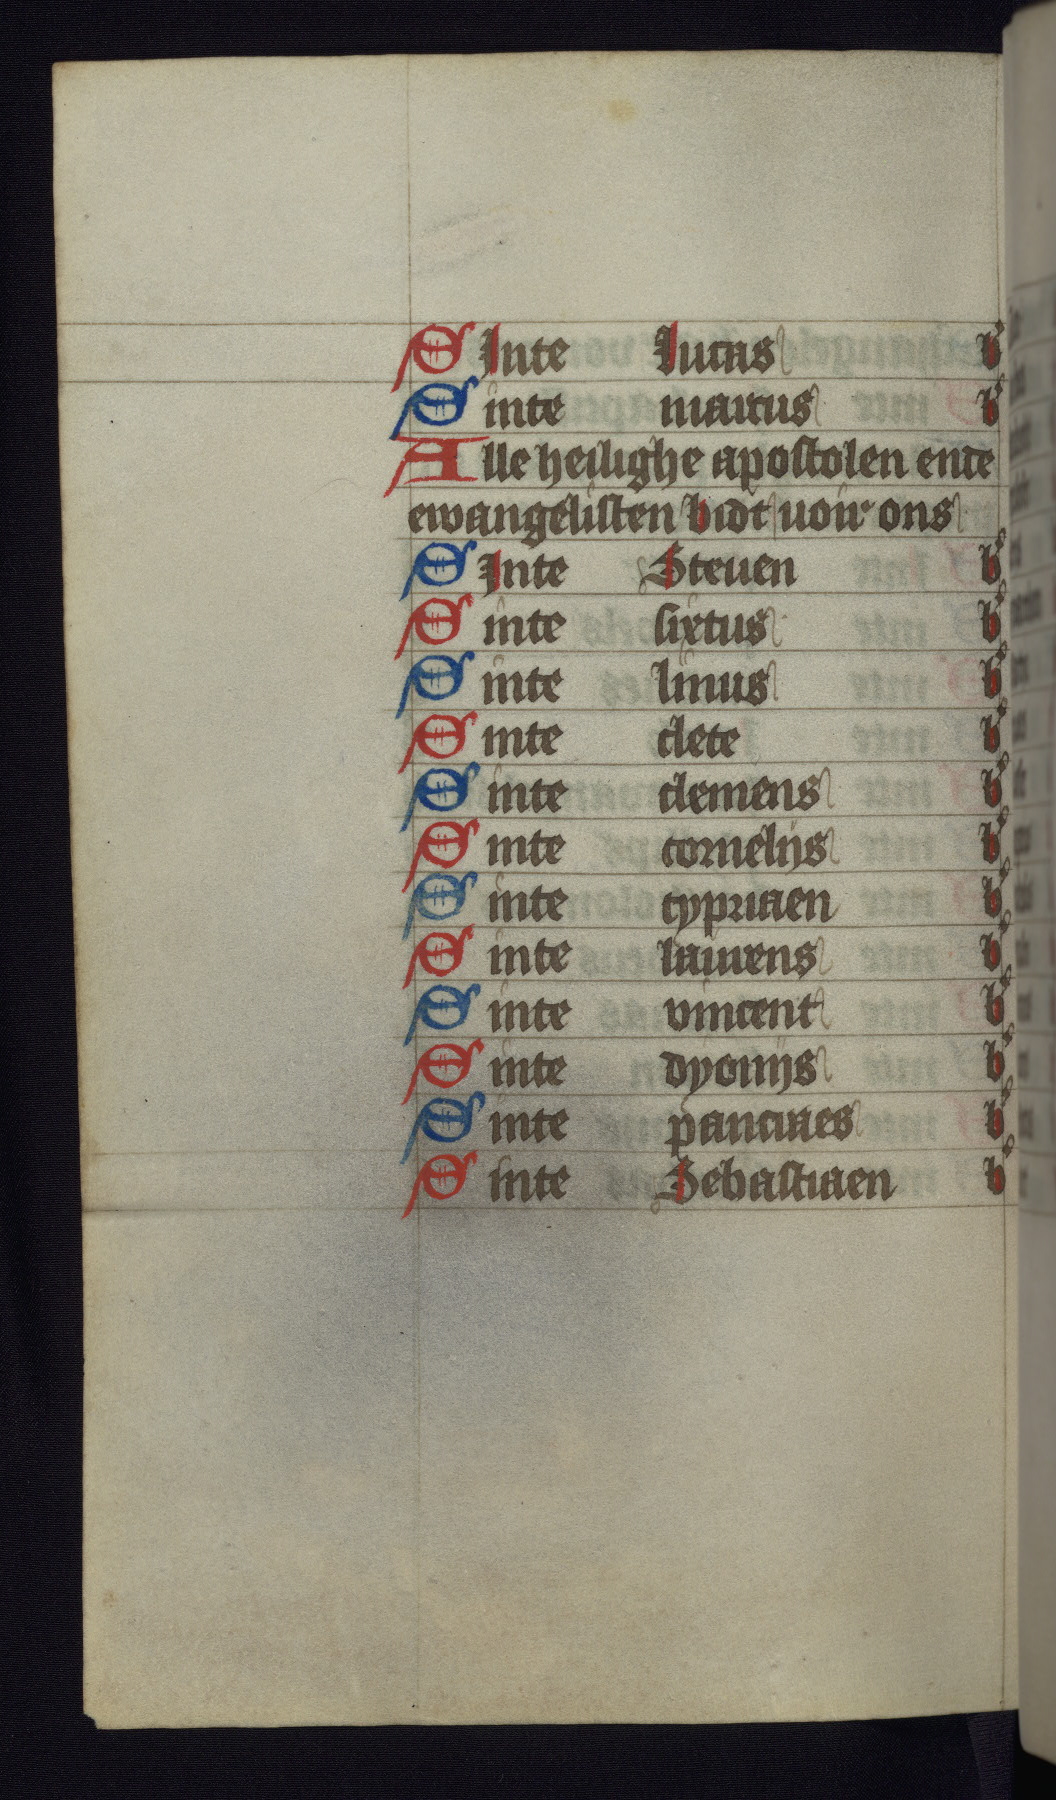 SInte lucas b
Sinte marcus b
Alle heilighe apostolen ende
ewangelisten bidt voir ons
SInte Steuen b
Sinte sixtus b
Sinte linus b
Sinte clete b
Sinte clemens b
Sinte cornelijs b
Sinte cypriaen b
Sinte laurens b
Sinte vincent b
Sinte dyonijs b
Sinte pancraes b
Sinte Sebastiaen b